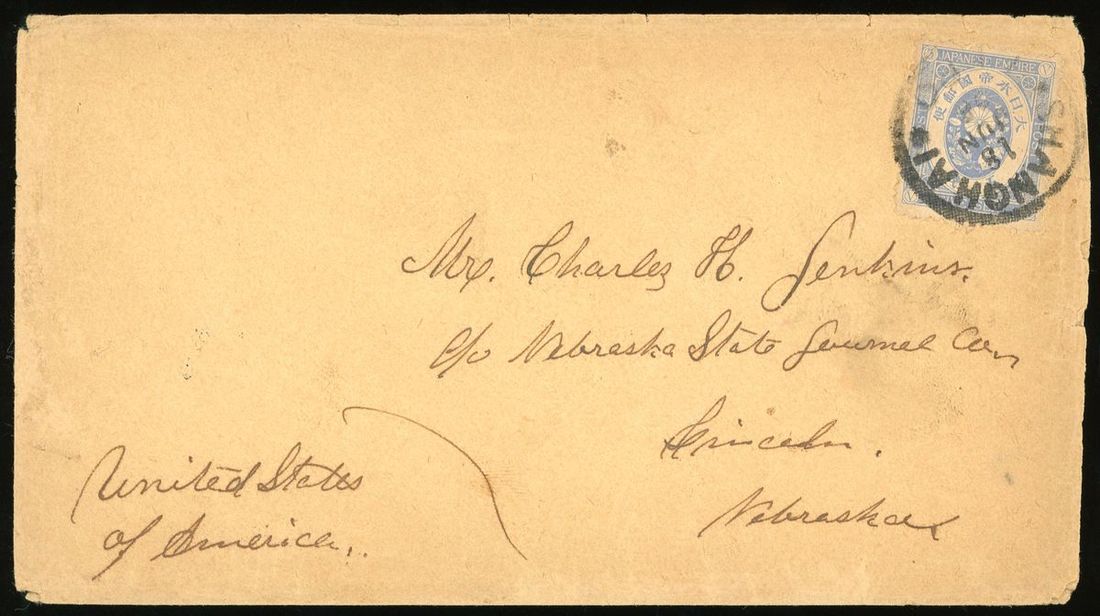 JAPANESE EMPIRE
大日本帝國郵便
SHANGHAI
18
JUN
Mr. Charles H. Jenkins.
c/o Nebraska State Journal Co.,
Lincoln.
Nebraska
United States
of America,.